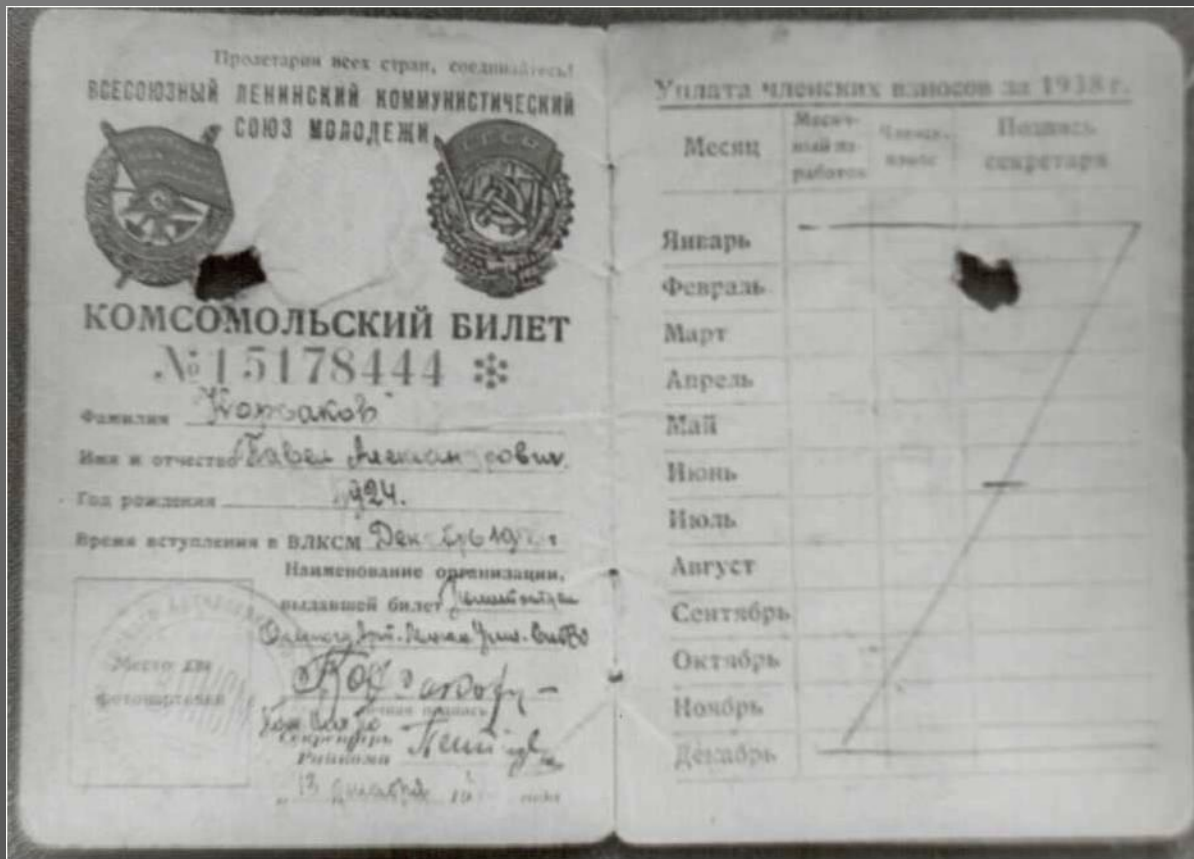 Пролетарии всех стран, соединяйтесь!
ВСЕСОЮЗНЫЙ ЛЕНИНСКИЙ КОММУНИСТИЧЕСКИЙ
СОЮЗ МОЛОДЕЖИ
СССР
КОМСОМОЛЬСКИЙ БИЛЕТ
№ 15178444
Фамилия
Имя и отчество Павел Александрович
Год рождения 1924.
Время вступления в ВЛКСМ Декабрь
Наименование организации,
выдавшей билет
Место для
фотокарточки
Личная подпись
Секретарь
Райкома
13 декабря года
Уплата членских взносов за 1938 г.
Месяц
Месяч-
ный за-
работок
Членск.
взнос
Подпись
секретаря
Январь
Февраль
Март
Апрель
Май
Июнь
Июль
Август
Сентябрь
Октябрь
Ноябрь
Декабрь